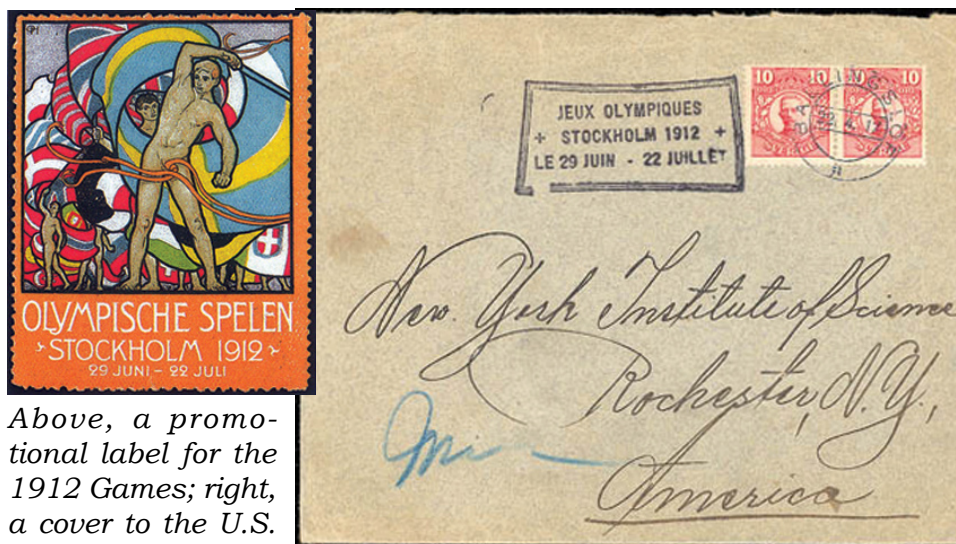 OLYMPISCHE SPELEN
STOCKHOLM 1912
29 JUNI – 22 JULI
Above, a promo-
tional label for the
1912 Games; right,
a cover to the U.S.
JEUX OLYMPIQUES
+ STOCKHOLM 1912 +
LE 29 JUIN - 22 JUILLET
10 10 10
SVERIGE
New York Institute of Science
Rochester, N.Y.,
America